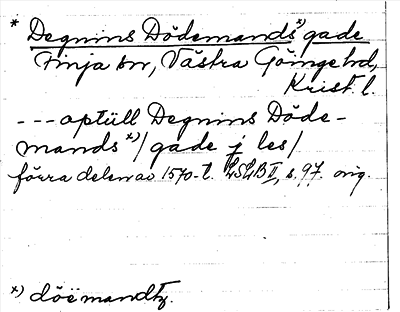 * Degnins Dödemands*) gade
Finja sn, Västra Göinge hd,
Krist. l.
--- optüll Degnins Döde-
mands*)/gade j les/
förra delen av 1570-t. LSLB II, s. 97. orig.
*) döëmandtz.